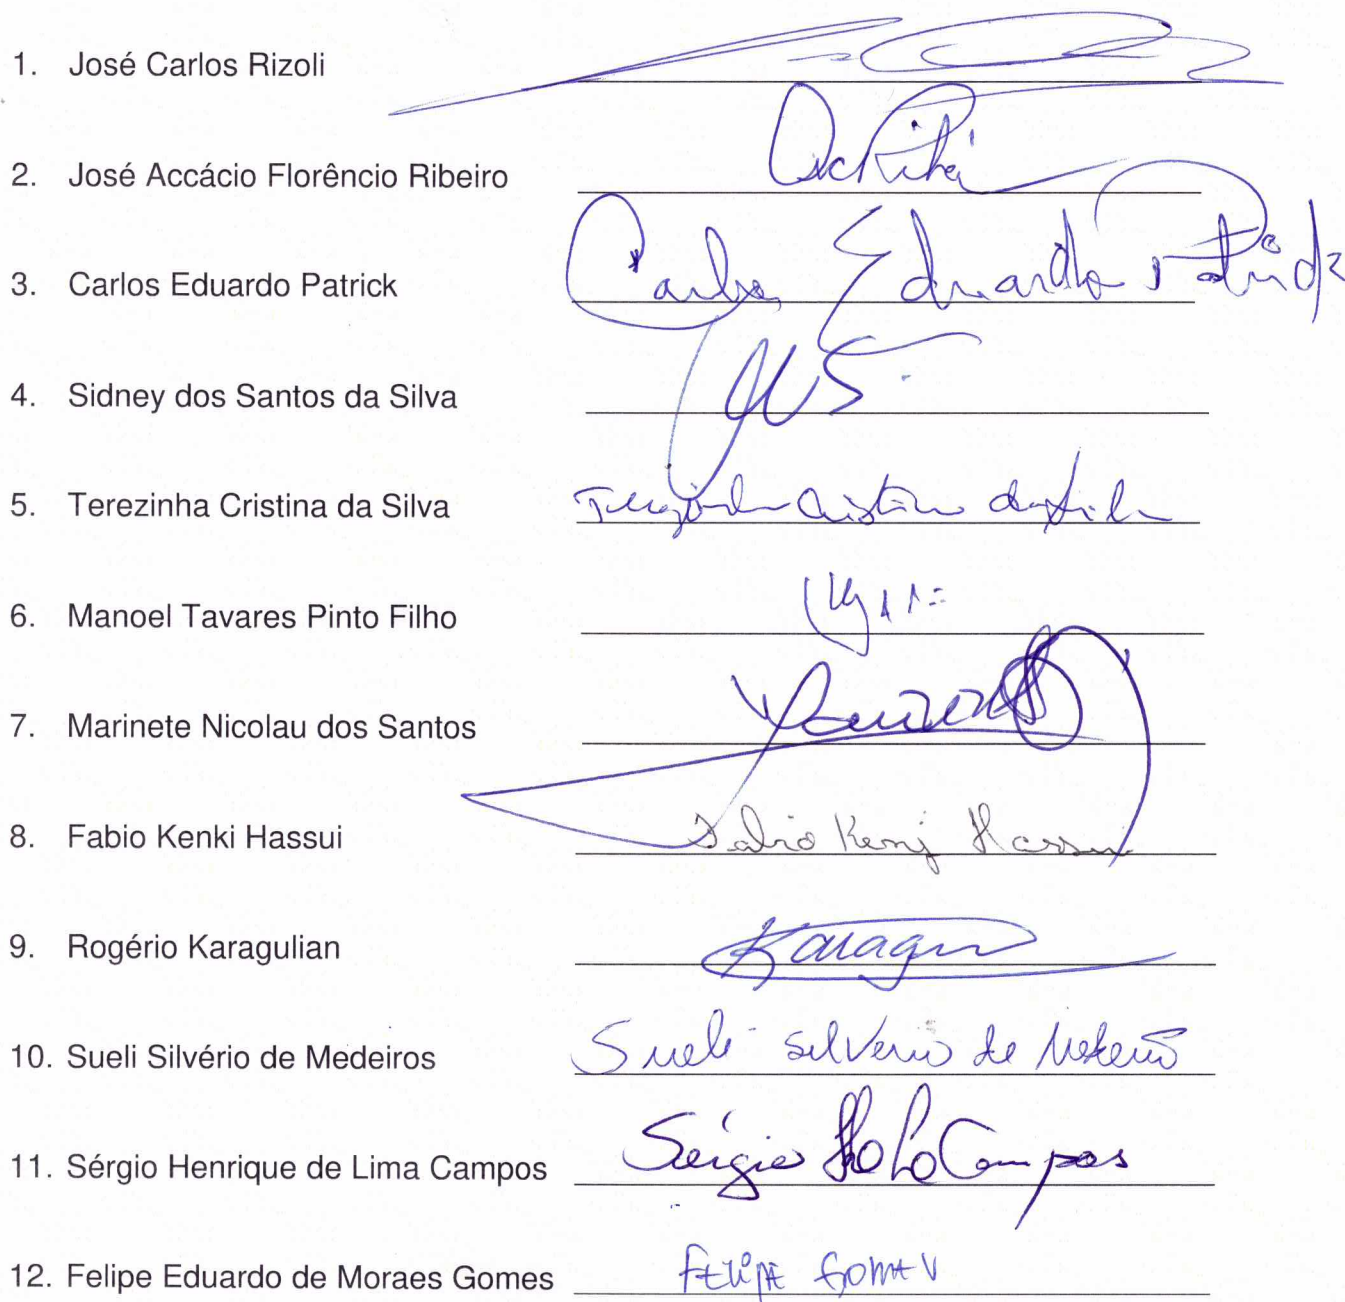 1. José Carlos Rizoli
2. José Accácio Florêncio Ribeiro
3. Carlos Eduardo Patrick Carlos Eduardo Patrick
4. Sidney dos Santos da Silva
5. Terezinha Cristina da Silva Terezinha Cristina da Silva
6. Manoel Tavares Pinto Filho
7. Marinete Nicolau dos Santos
8. Fabio Kenki Hassui Fabio Kenj Hassui
9. Rogério Karagulian Karagu
10. Sueli Silvério de Medeiros Sueli Silverio de Medeiros
11. Sérgio Henrique de Lima Campos Sérgio Campos
12. Felipe Eduardo de Moraes Gomes Felipe Gomes